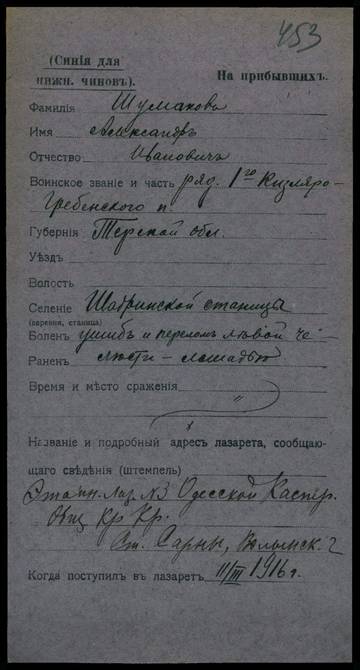 453
(Синія для
нижн. чиновъ).
На прибывшихъ.
Фамилія Шумаковъ
Имя Александръ
Отчество Ивановичъ
Воинское званіе и часть ряд. 1го Кизляро-
Гребенского п
Губернія Терской обл.
Уѣздъ
Волость
Селеніе Шадринской станицы
(деревня, станица)
Боленъ ушибъ и переломъ лѣвой че-
Раненъ люсти – лошадью
Время и мѣсто сраженія "
Названіе и подробный адресъ лазарета, сообщаю-
щаго свѣдѣнія (штемпель)
Этапн. Лаз. N3 Одесской Каспер.
Общ Кр Кр.
Ст. Сарны, Волынск. г
Когда поступилъ въ лазаретъ 11/III 1916 г.